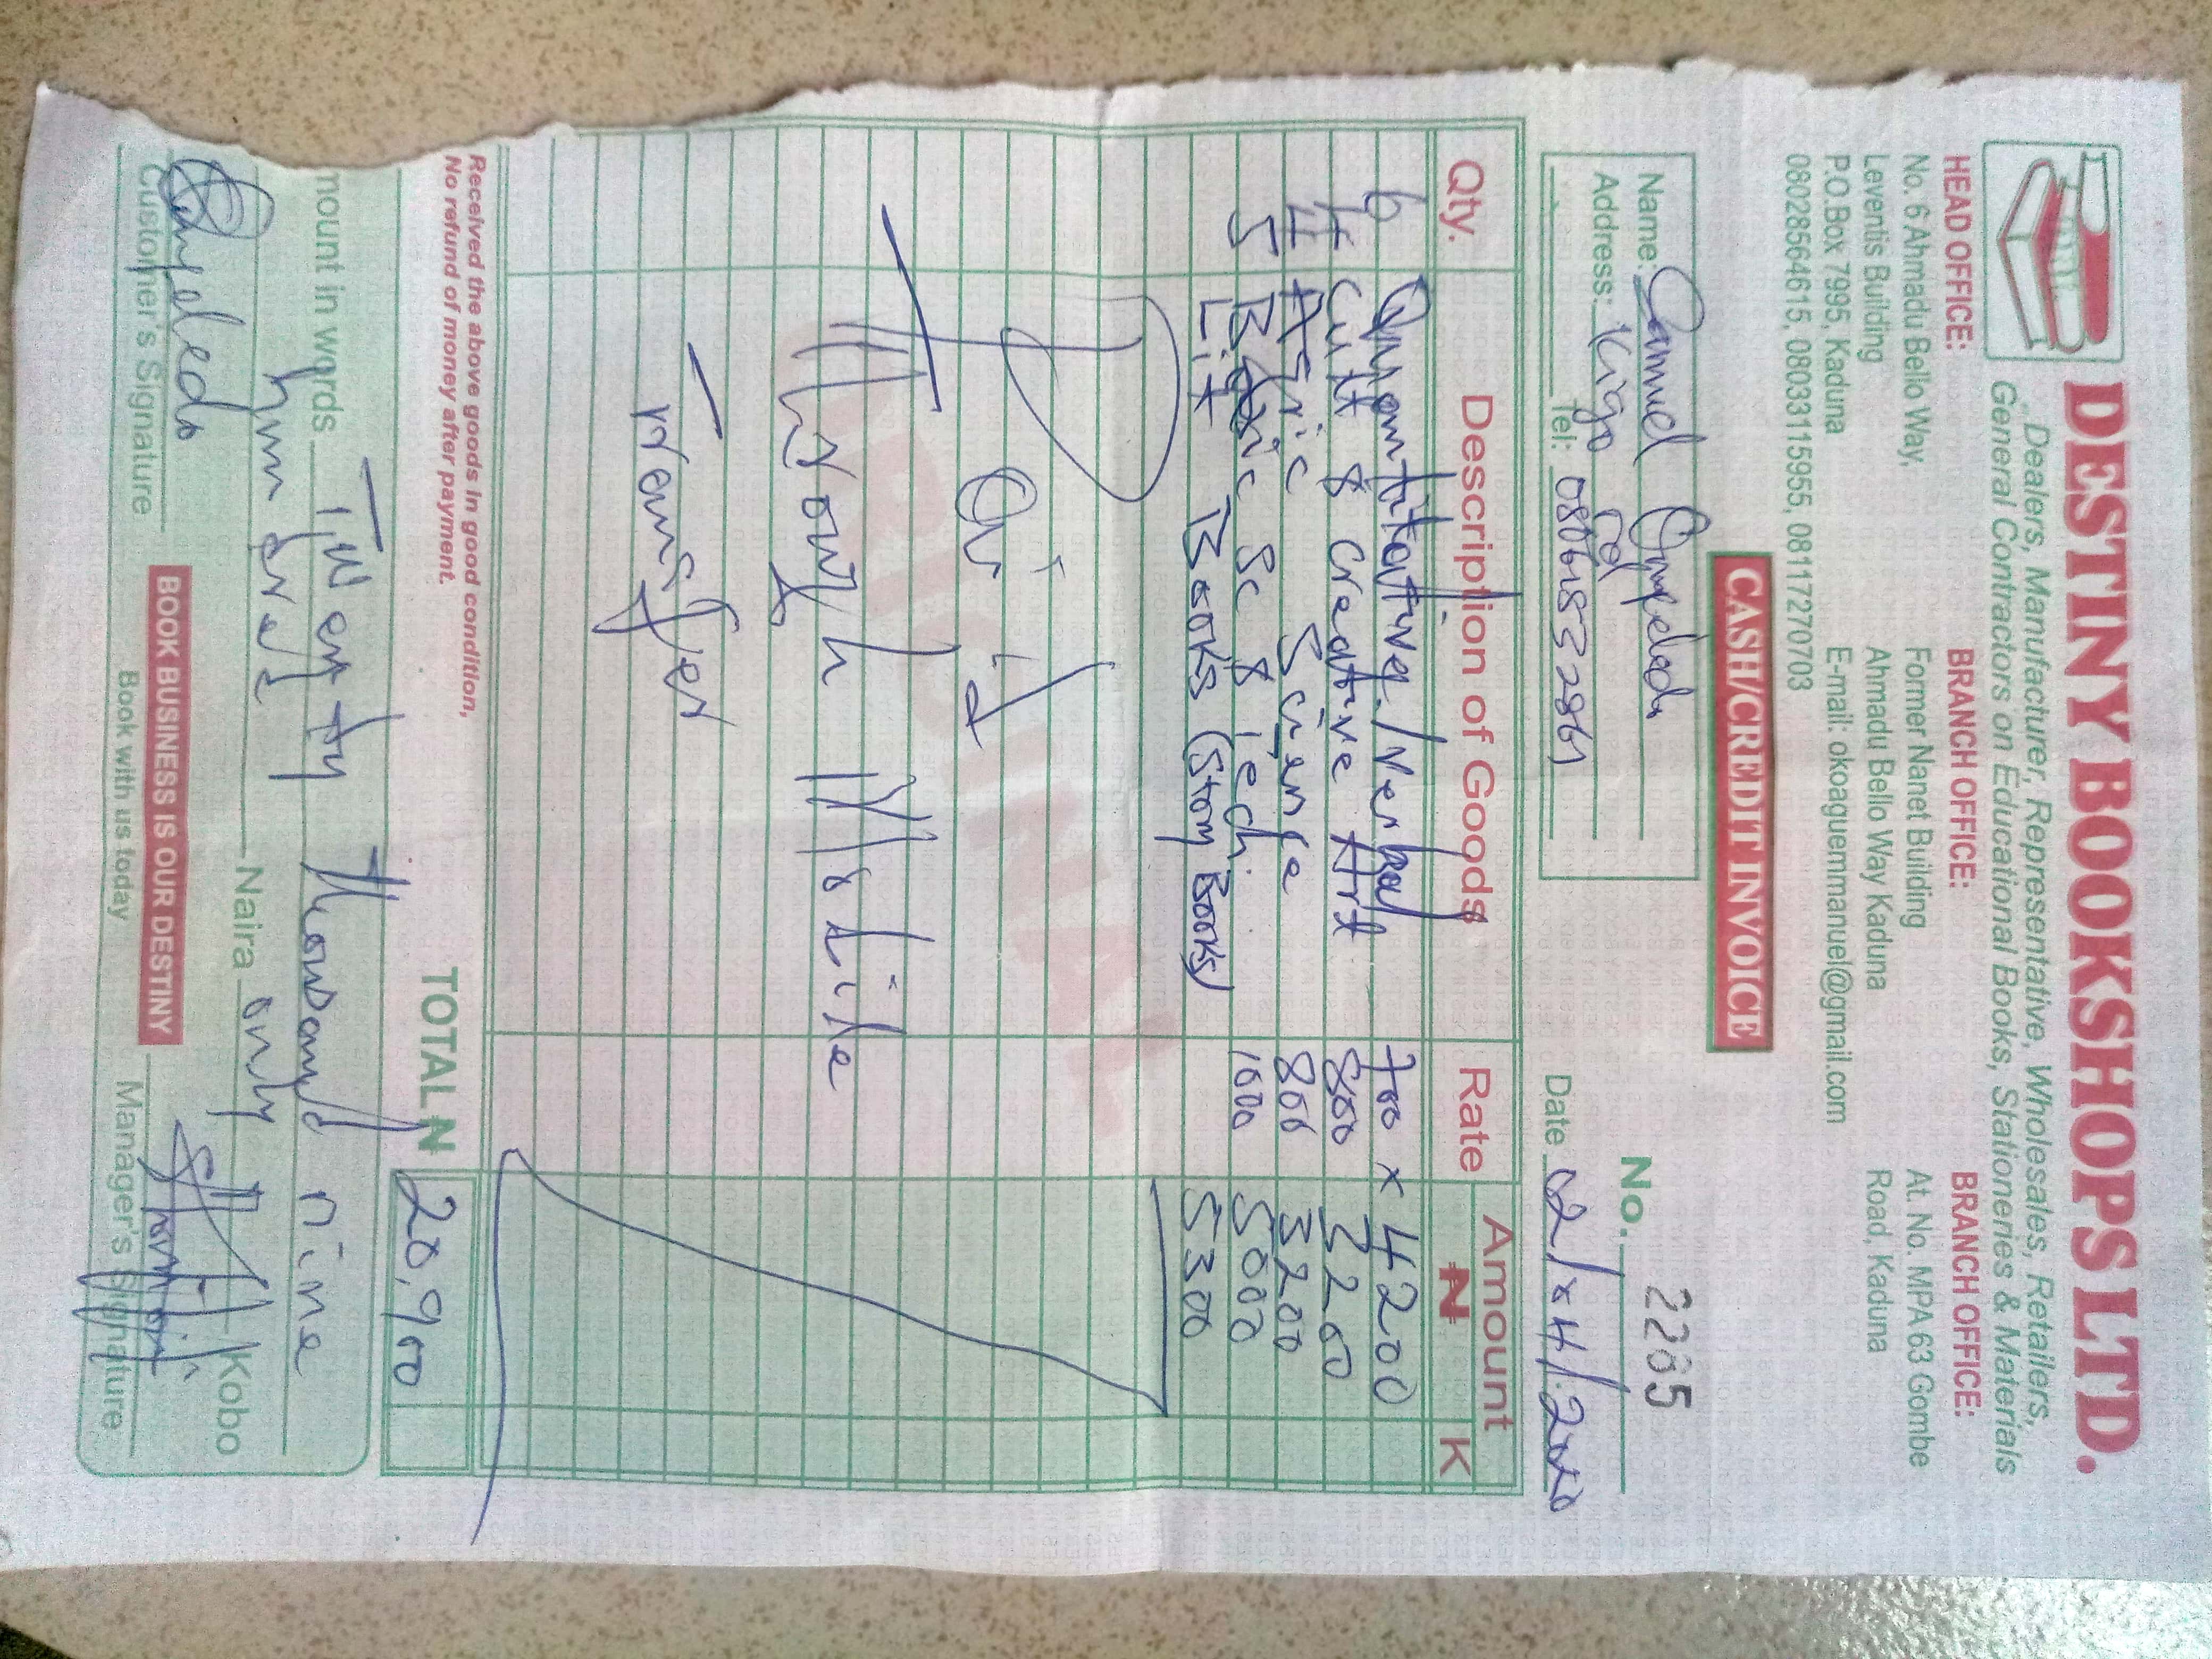 DESTINY BOOKSHOPS LTD.
Dealers, Manufacturer, Representative, Wholesales, Retailers,
General Contractors on Educational Books, Stationeries & Materials
HEAD OFFICE:
No. 6 Ahmadu Bello Way,
Leventis Building
P.O.Box 7995, Kaduna
08028564615, 08033115955, 08117270703
BRANCH OFFICE:
Former Nanet Building
Ahmadu Bello Way Kaduna
E-mail: okoaguemmanuel@gmail.com
BRANCH OFFICE:
At. No. MPA 63 Gombe
Road, Kaduna
CASH/CREDIT INVOICE
No. 2205
Name: Samuel
Address: Kigo Rd
Tel:
Date 02/04/2020
Qty. Description of Goods Rate Amount
₦ K
6 Quantitative/Verbal 700 x 4200
4 Cult & Creative Art 800 3200
4 Agric Science 800 3200
5 Basic Sc & Tech. 1000 5000
Lit Books (Story Books) 5300
Paid
Through Mobile
Transfer
ORIGINAL
Received the above goods in good condition,
No refund of money after payment.
TOTAL ₦ 20,900
mount in words Twenty thousand nine
hundred Naira only Kobo
Customer's Signature
BOOK BUSINESS IS OUR DESTINY
Book with us today
Manager's Signature